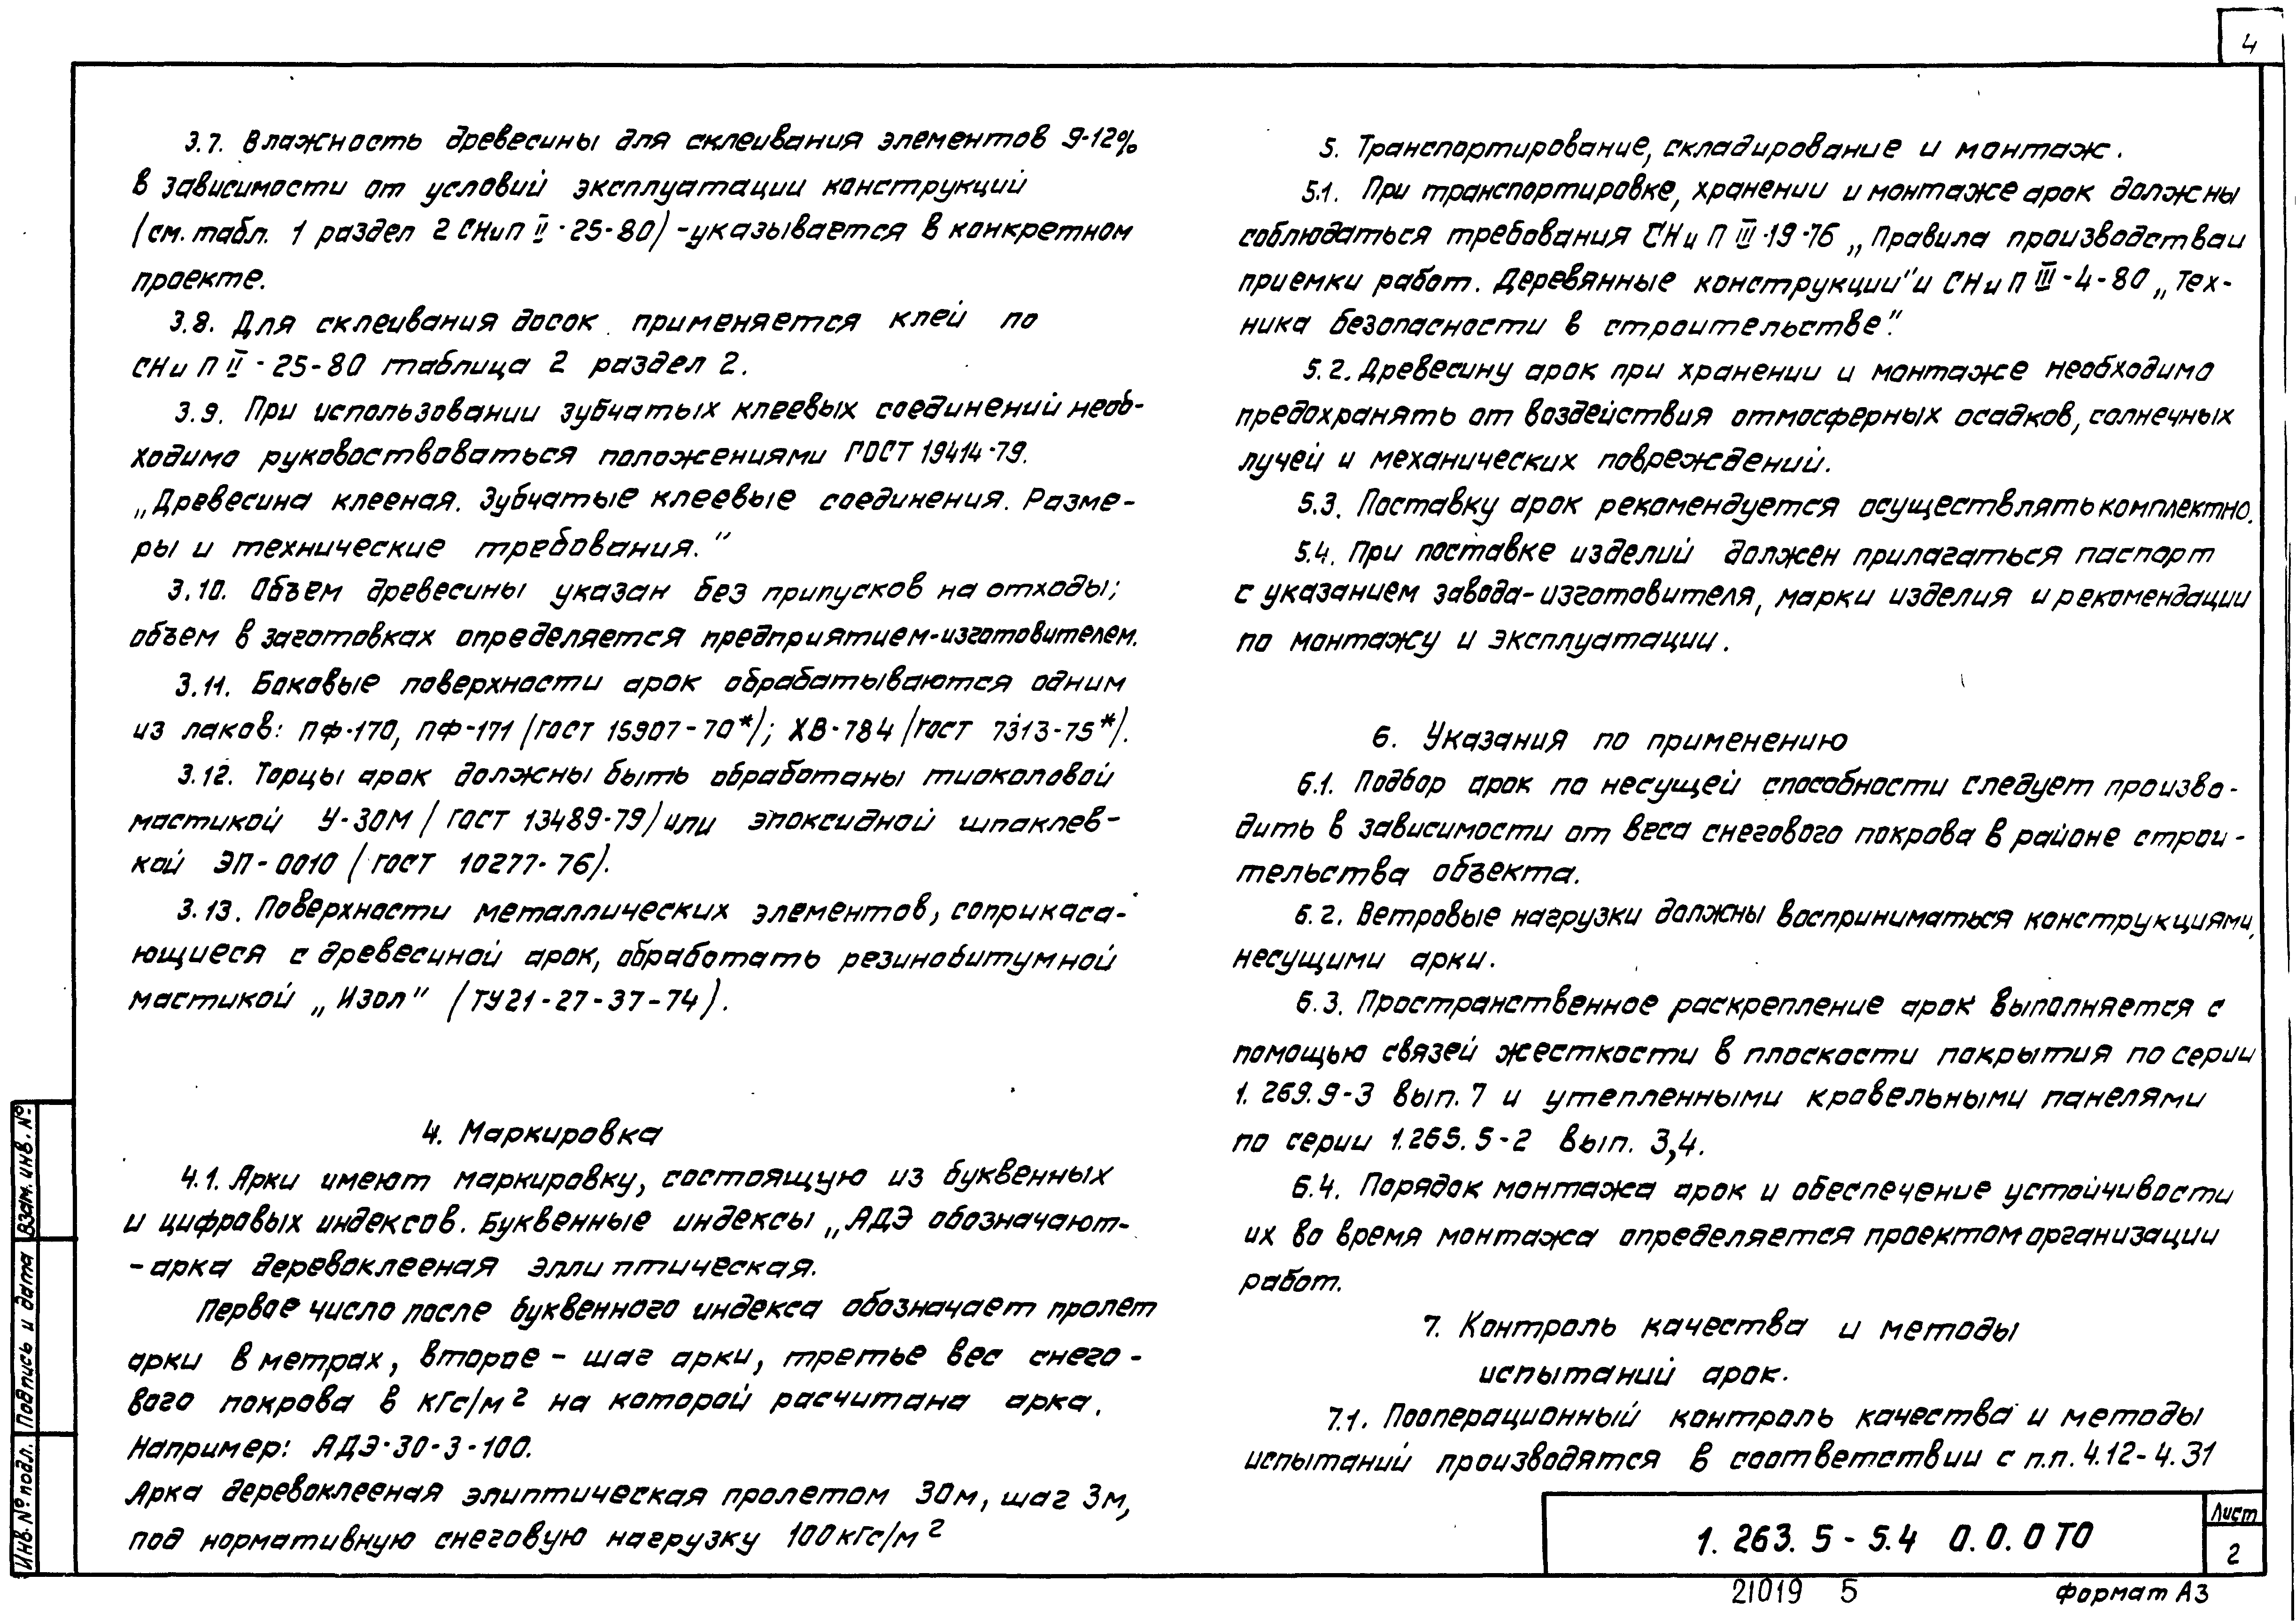 4
3.7. Влажность древесины для склеивания элементов 9-12%
в зависимости от условий эксплуатации конструкций
/см. табл. 1 раздел 2 СНиП II-25-80/ -указывается в конкретном
проекте.
3.8. Для склеивания досок применяется клей по
СНиП II-25-80 таблица 2 раздел 2.
3.9. При использовании зубчатых клеевых соединений необ-
ходимо руковоствоваться положениями ГОСТ 19414-79.
„Древесина клееная. Зубчатые клеевые соединения. Разме-
ры и технические требования."
3.10. Объем древесины указан без припусков на отходы;
объем в заготовках определяется предприятием-изготовителем.
3.11. Боковые поверхности арок обрабатываются одним
из лаков: ПФ-170, ПФ-171 /ГОСТ 15907-70*/; ХВ-784 /ГОСТ 7313-75*/.
3.12. Торцы арок должны быть обработаны тиоколовой
мастикой У-30М /ГОСТ 13489-79/ или эпоксидной шпаклев-
кой ЭП-0010 /ГОСТ 10277-76/.
3.13. Поверхности металлических элементов, соприкаса-
ющиеся с древесиной арок, обработать резинобитумной
мастикой „Изол" /ТУ21-27-37-74/.
4. Маркировка
4.1. Арки имеют маркировку, состоящую из буквенных
и цифровых индексов. Буквенные индексы „АДЭ обозначают-
-арка деревоклееная эллиптическая.
Первое число после буквенного индекса обозначает пролет
арки в метрах, второе - шаг арки, третье вес снего-
вого покрова в кгс/м² на которой расчитана арка.
Например: АДЭ-30-3-100.
Арка деревоклееная элиптическая пролетом 30м, шаг 3м,
под нормативную снеговую нагрузку 100кгс/м²
5. Транспортирование, складирование и монтаж.
5.1. При транспортировке, хранении и монтаже арок должны
соблюдаться требования СНиП III-19-76 „Правила производства и
приемки работ. Деревянные конструкции" и СНиП III-4-80 „Тех-
ника безопасности в строительстве".
5.2. Древесину арок при хранении и монтаже необходимо
предохранять от воздействия отмосферных осадков, солнечных
лучей и механических повреждений.
5.3. Поставку арок рекомендуется осуществлять комплектно.
5.4. При поставке изделий должен прилагаться паспорт
с указанием завода-изготовителя, марки изделия и рекомендации
по монтажу и эксплуатации.
6. Указания по применению
6.1. Подбор арок по несущей способности следует произво-
дить в зависимости от веса снегового покрова в районе строи-
тельства объекта.
6.2. Ветровые нагрузки должны восприниматься конструкциями,
несущими арки.
6.3. Пространственное раскрепление арок выполняется с
помощью связей жесткости в плоскости покрытия по серии
1.269.9-3 вып. 7 и утепленными кровельными панелями
по серии 1.265.5-2 вып. 3,4.
6.4. Порядок монтажа арок и обеспечение устойчивости
их во время монтажа определяется проектом организации
работ.
7. Контроль качества и методы
испытаний арок.
7.1. Пооперационный контроль качества и методы
испытаний производятся в соответствии с п.п. 4.12-4.31
Взам. инв. №
Подпись и дата
Инв. № подл.
1.263.5-5.4 0.0.0 ТО
Лист
2
21019 5
Формат А3